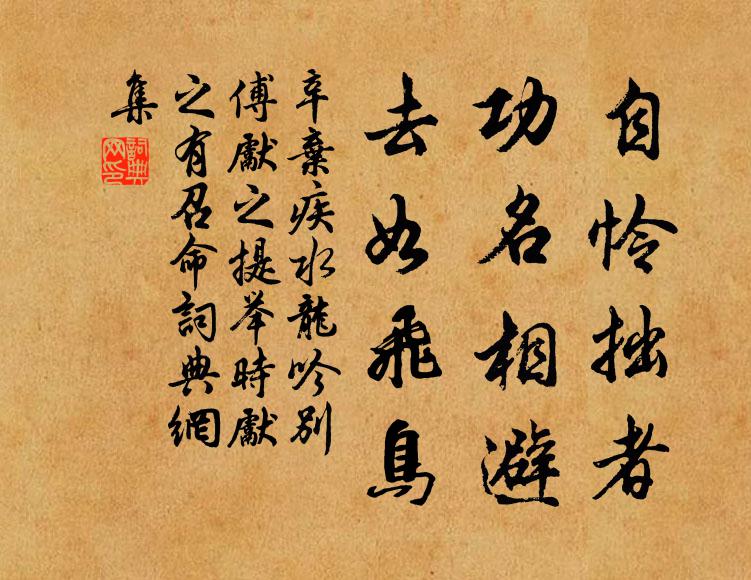 自怜拙者
功名相避
去如飛鳥
辛棄疾水龍吟別
傅獻之提举時獻
之有召命詞典網
集
詞典
网印